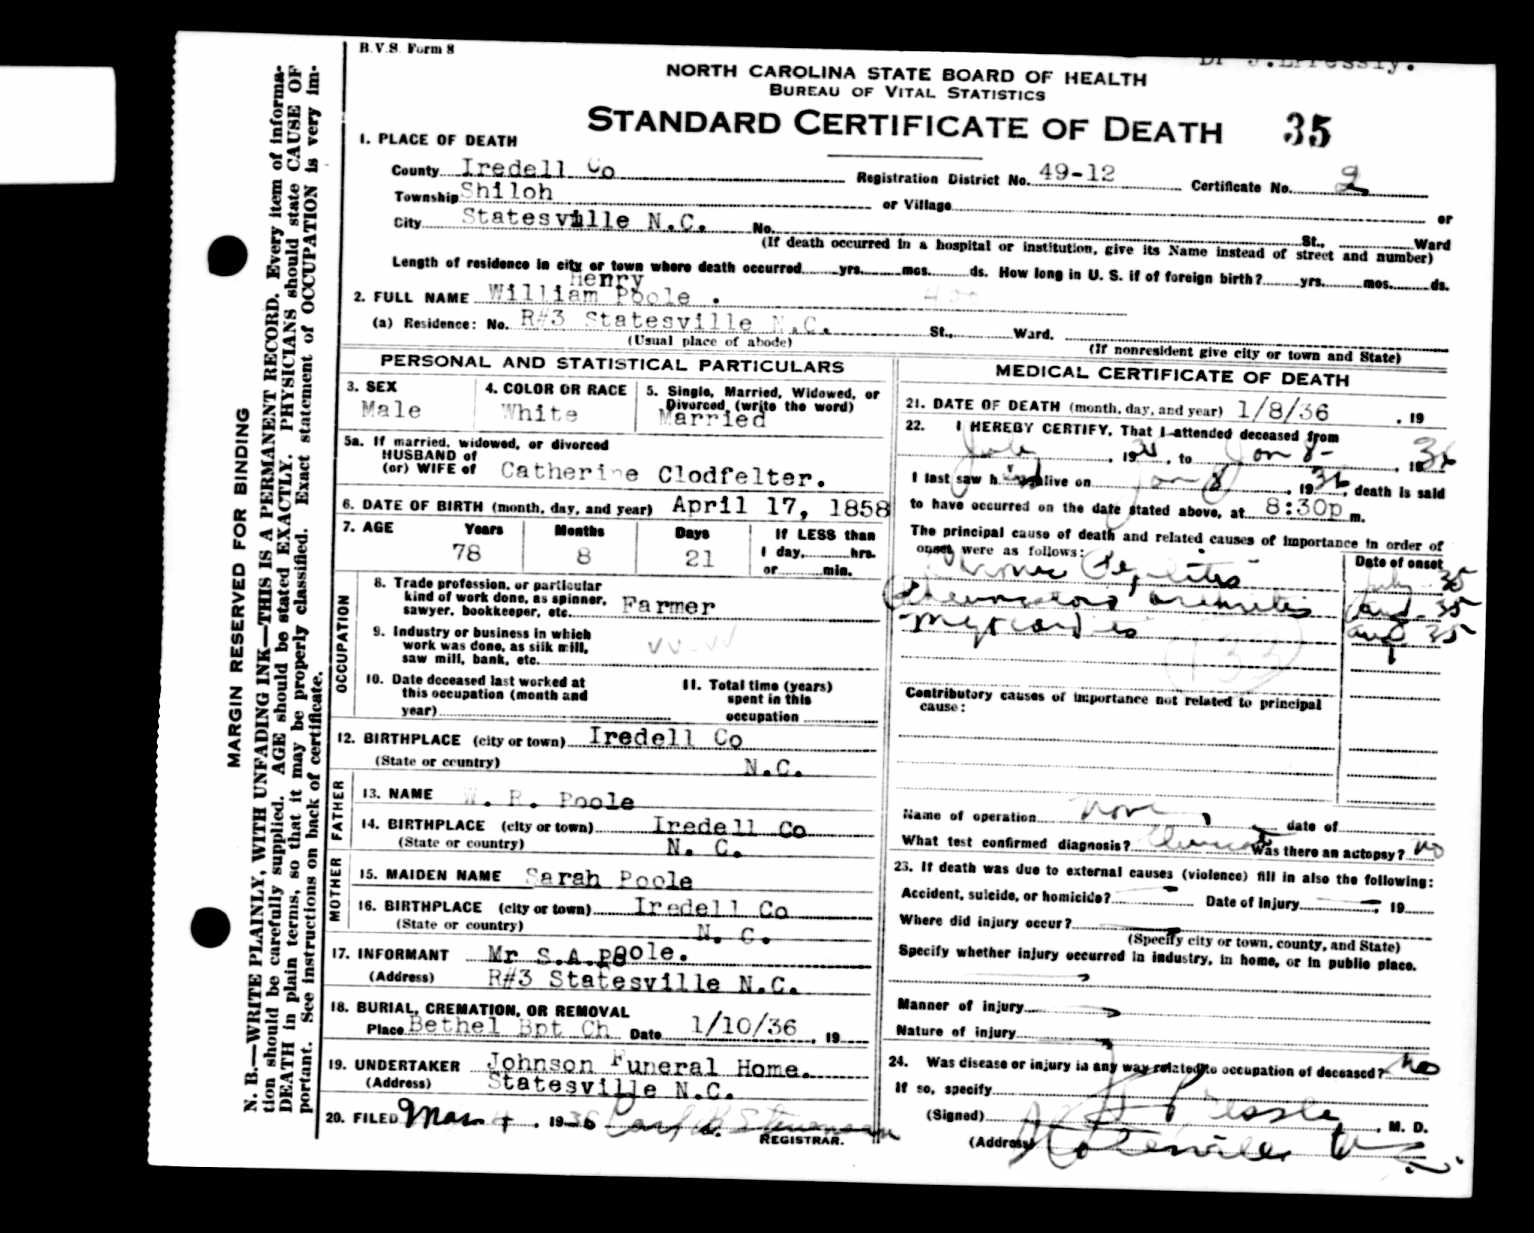 B.V.S. Form 8
NORTH CAROLINA STATE BOARD OF HEALTH
BUREAU OF VITAL STATISTICS
STANDARD CERTIFICATE OF DEATH 35
1. PLACE OF DEATH
County Iredell Co Registration District No. 49-12 Certificate No. 2
Township Shiloh or Village or
City Statesville N.C. No. St., Ward
(If death occurred in a hospital or institution, give its Name instead of street and number)
Length of residence in city or town where death occurred yrs. mos. ds. How long in U. S. if of foreign birth? yrs. mos. ds.
Henry
2. FULL NAME William Poole .
(a) Residence: No. R#3 Statesville N.C. St., Ward.
(Usual place of abode) (If nonresident give city or town and State)
PERSONAL AND STATISTICAL PARTICULARS
3. SEX 4. COLOR OR RACE 5. Single, Married, Widowed, or
Divorced (write the word)
Male White Married
5a. If married, widowed, or divorced
HUSBAND of
(or) WIFE of Catherine Clodfelter.
6. DATE OF BIRTH (month, day, and year) April 17, 1858
7. AGE Years Months Days If LESS than
78 8 21 1 day, hrs.
or min.
OCCUPATION
8. Trade profession, or particular
kind of work done, as spinner,
sawyer, bookkeeper, etc. Farmer
9. Industry or business in which
work was done, as silk mill,
saw mill, bank, etc.
10. Date deceased last worked at
this occupation (month and
year)
11. Total time (years)
spent in this
occupation
12. BIRTHPLACE (city or town) Iredell Co
(State or country) N.C.
FATHER
13. NAME W. R. Poole
14. BIRTHPLACE (city or town) Iredell Co
(State or country) N. C.
MOTHER
15. MAIDEN NAME Sarah Poole
16. BIRTHPLACE (city or town) Iredell Co
(State or country) N. C.
17. INFORMANT Mr S.A.Poole.
(Address) R#3 Statesville N.C.
18. BURIAL, CREMATION, OR REMOVAL
Place Bethel Bpt Ch Date 1/10/36, 19
19. UNDERTAKER Johnson Funeral Home.
(Address) Statesville N.C.
20. FILED Mar 4, 1936 Carl B. Stevenson
REGISTRAR.
MEDICAL CERTIFICATE OF DEATH
21. DATE OF DEATH (month, day, and year) 1/8/36, 19
22. I HEREBY CERTIFY, That I attended deceased from
July, 19, to Jan 8-, 1936
I last saw h alive on Jan 8, 1936, death is said
to have occurred on the date stated above, at 8:30p m.
The principal cause of death and related causes of importance in order of
onset were as follows: Date of onset
July 35
Aug. 35
Myocarditis Aug 35
Contributory causes of importance not related to principal
cause:
Name of operation None, date of
What test confirmed diagnosis? Clinical Was there an autopsy? No
23. If death was due to external causes (violence) fill in also the following:
Accident, suicide, or homicide? Date of Injury, 19
Where did injury occur?
(Specify city or town, county, and State)
Specify whether injury occurred in industry, in home, or in public place.
Manner of injury
Nature of injury
24. Was disease or injury in any way related to occupation of deceased? No
If so, specify
(Signed) J L Pressly, M. D.
(Address) Statesville N.C.
MARGIN RESERVED FOR BINDING
N. B.—WRITE PLAINLY, WITH UNFADING INK—THIS IS A PERMANENT RECORD. Every item of informa-
tion should be carefully supplied. AGE should be stated EXACTLY. PHYSICIANS should state CAUSE OF
DEATH in plain terms, so that it may be properly classified. Exact statement of OCCUPATION is very im-
portant. See instructions on back of certificate.